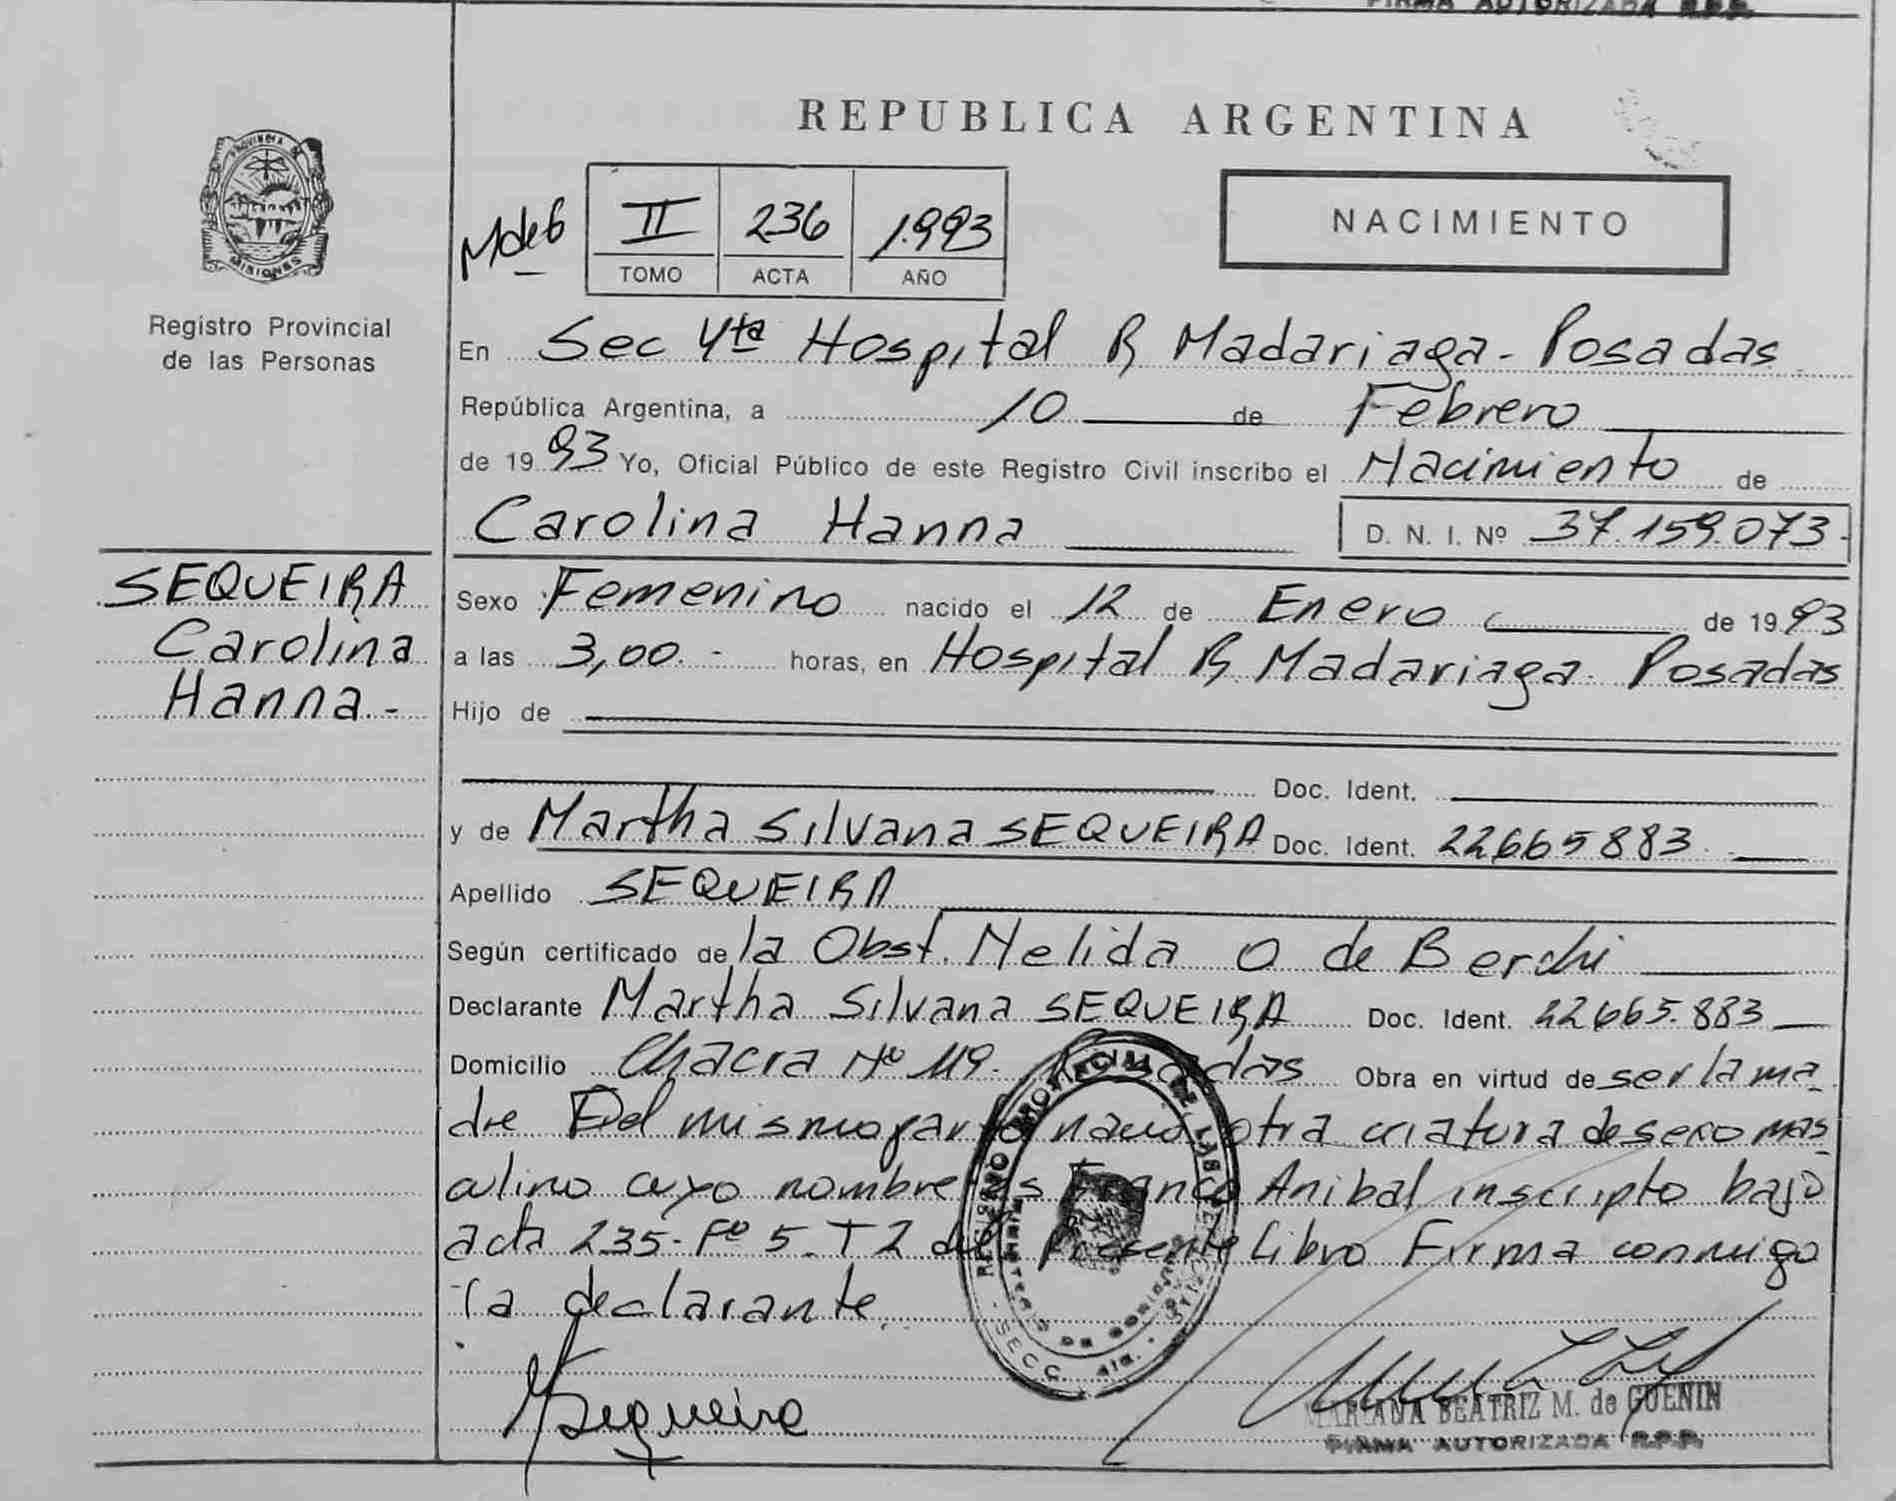 FIRMA AUTORIZADA R.P.P.
REPUBLICA ARGENTINA
PROVINCIA DE
MISIONES
Registro Provincial
de las Personas
II 236 1.993
TOMO ACTA AÑO
NACIMIENTO
En Sec 4ta Hospital R Madariaga - Posadas
República Argentina, a 10 de Febrero
de 1993 Yo, Oficial Público de este Registro Civil inscribo el Nacimiento de
Carolina Hanna D. N. I. Nº 37.159.073-
SEQUEIRA
Carolina
Hanna.-
Sexo Femenino nacido el 12 de Enero de 1993
a las 3,00.- horas, en Hospital R. Madariaga. Posadas
Hijo de
Doc. Ident.
y de Martha Silvana SEQUEIRA Doc. Ident. 22665883
Apellido SEQUEIRA
Según certificado de la Obst. Nelida O de Berchi
Declarante Martha Silvana SEQUEIRA Doc. Ident. 22665.883
Domicilio Chacra Nº 119. Posadas Obra en virtud de ser la ma
dre Del mismo parto nació otra criatura de sexo mas
culino cuyo nombre es Franco Anibal inscripto bajo
acta 235- Fº 5. T 2 del Presente Libro Firma conmigo
la declarante.
REGISTRO PROVINCIAL DE LAS
SECC. 4ta.
MSequeira
MARIANA BEATRIZ M. de GUENIN
FIRMA AUTORIZADA R.P.P.